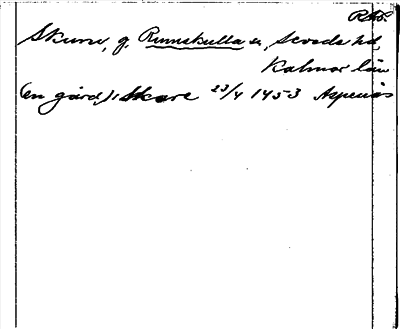 Skure, g. Rumskulla sn, Sevede hd,
Kalmar län
(en gård) i Skore 23/4 1453 Aspenäs